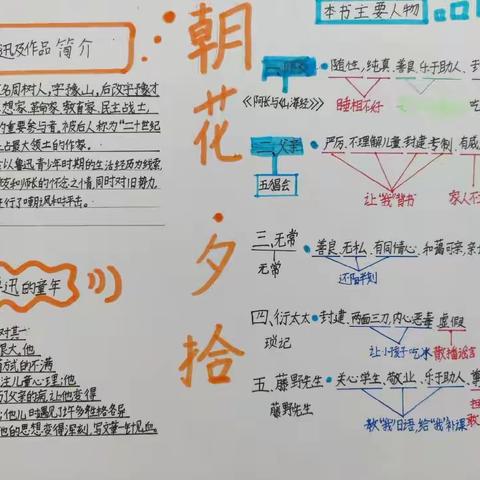 朝花·夕拾
迅及作品简介
名周树人，字豫山，后改字豫才
想家、革命家、教育家、民主战士，
的重要参与者，被后人称为"二十世纪
上占最大领土的作家。
以鲁迅青少年时期的生活经历为线索，
友和师长的怀念之情，同时对旧势力
进行了嘲讽和抨击。
迅的童年
对其一
很大，他
方式的不满
注儿童心理；他
父亲的病，让他变得
他的思想变得深刻，写文章一针见血。
本书主要人物
《阿长与《山海经》》
随性、纯真、善良、乐于助人、封
睡相不好
二、父亲
五猖会
严厉、不理解儿童、封建专制、有底
让"我"背书
家人不
三、无常
无常
善良、无私、有同情心、和蔼可亲、亲
还阳半刻
四、衍太太
琐记
封建、两面三刀、内心恶毒、虚假
让小孩子吃冰
散播谣言
五、藤野先生
藤野先生
关心学生、敬业、乐于助人、
教"我"日语，给"我"补课